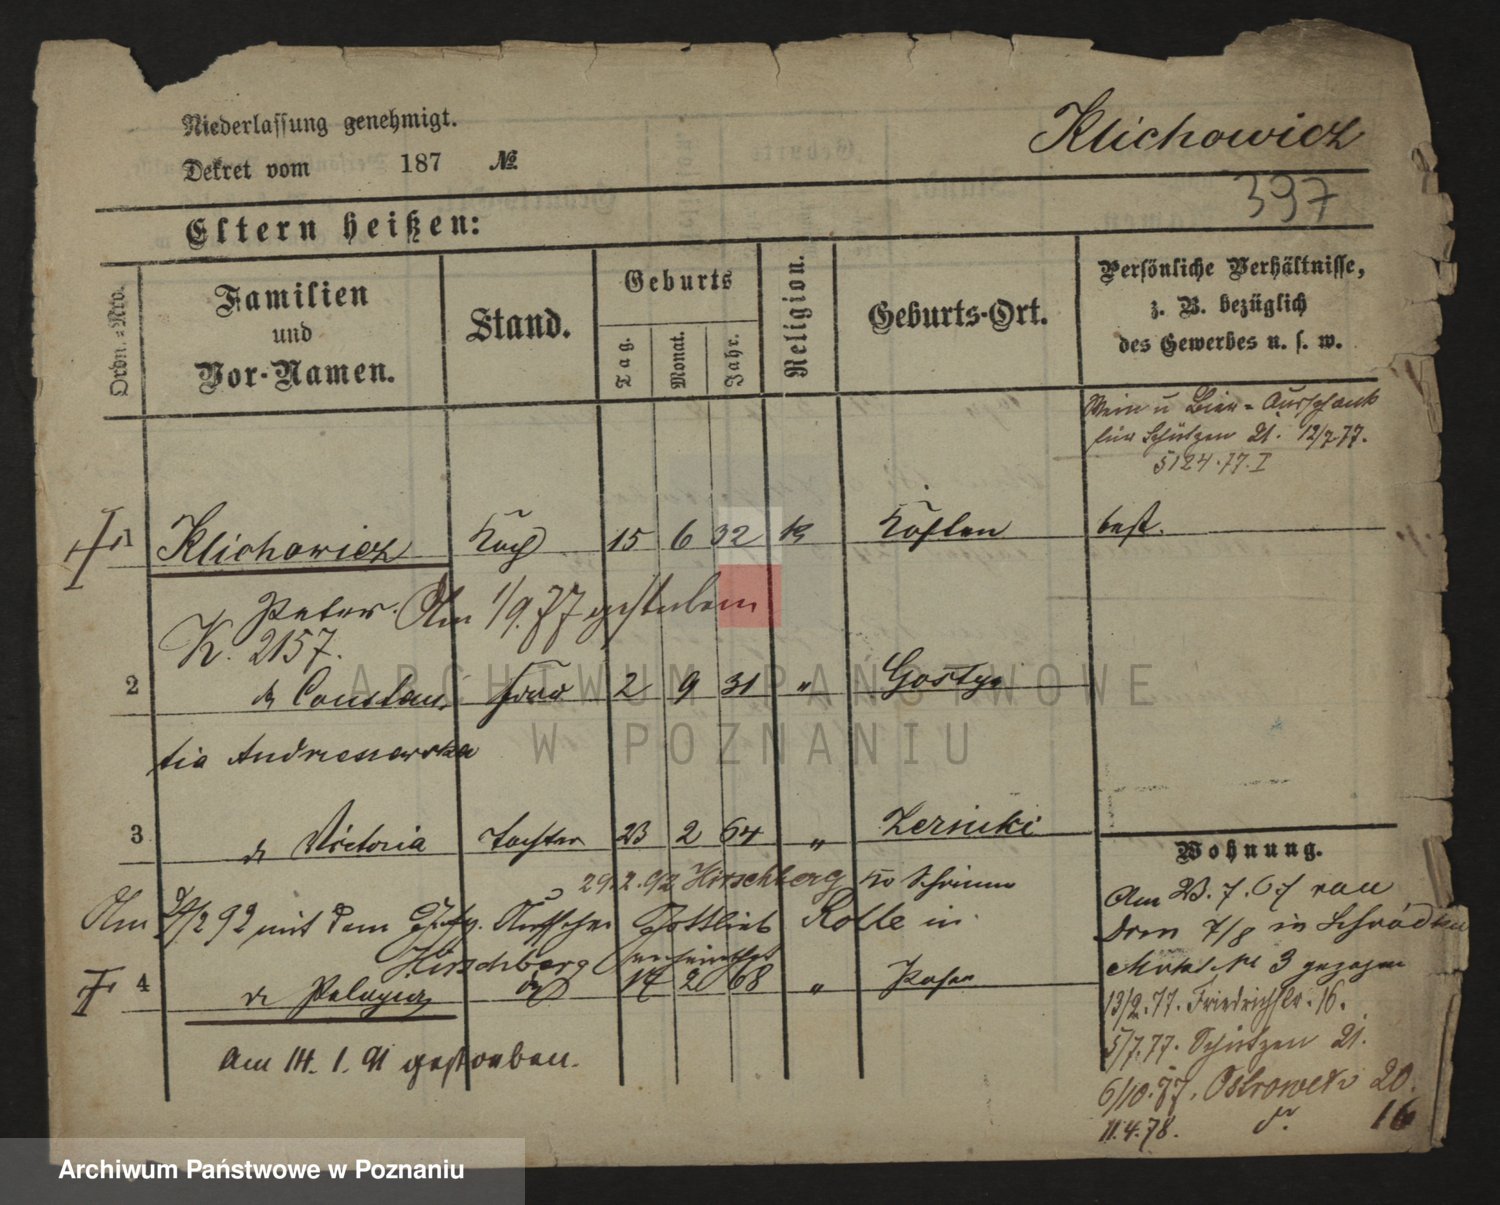 Niederlassung genehmigt.
Klichowicz
Dekret vom 187 №
397
Eltern heißen:
Ordn.-Nro.
Familien
und
Vor-Namen.
Stand.
Geburts
Tag.
Monat.
Jahr.
Religion.
Geburts-Ort.
Persönliche Verhältnisse,
z. B. bezüglich
des Gewerbes u. s. w.
Wein u Bier-Ausschank
für Schützen 21. 12/7 77.
5124.77.I
1 Klichowicz Koch 15 6 32 k Kosten best.
Peter. Am 1/9.77 gestorben
K. 2157.
2 Constan Frau 2 9 31 " Gostyn
tia Andrzejewska
3 Victoria Tochter 23 2 64 " Zerniki
29.2.92 Hirschberg Schrimm
Am 92 mit dem Aufseher Gottlieb Rolle in
Hirschberg verheirathet
4 Pelagia 14 2 68 " Posen
Am 14. 1. 91 gestorben.
Wohnung.
Am 23.7.67 von
7/8 in
3 gezogen
13/2.77. Friedrichstr. 16.
5/7.77. Schützen 21.
6/10.77. Ostrowek 20.
11.4.78. 16
ARCHIWUM PAŃSTWOWE
W POZNANIU
Archiwum Państwowe w Poznaniu